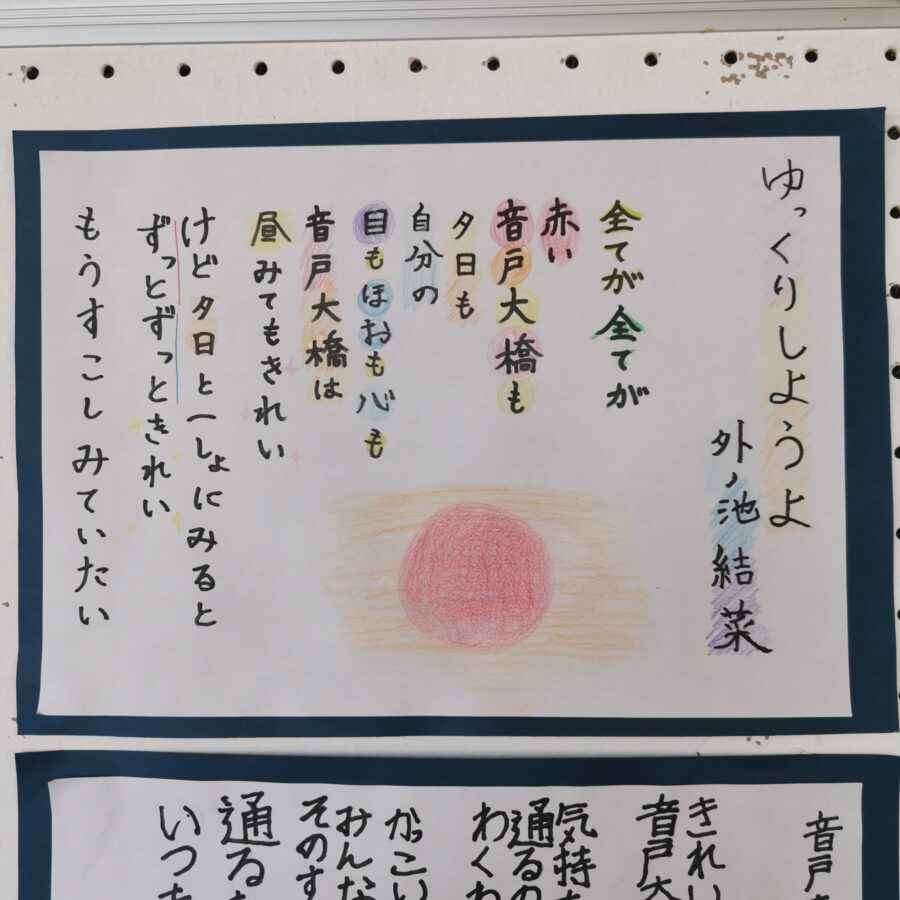 ゆっくりしようよ
外ノ池結菜
全てが全てが
赤い
音戸大橋も
夕日も
自分の
目もほおも心も
音戸大橋は
昼みてもきれい
けど夕日と一しょにみると
ずっとずっときれい
もうすこしみていたい
音戸
きれい
音戸大
気持
通るの
わくわ
かっこい
みんな
そのす
通る
いつも